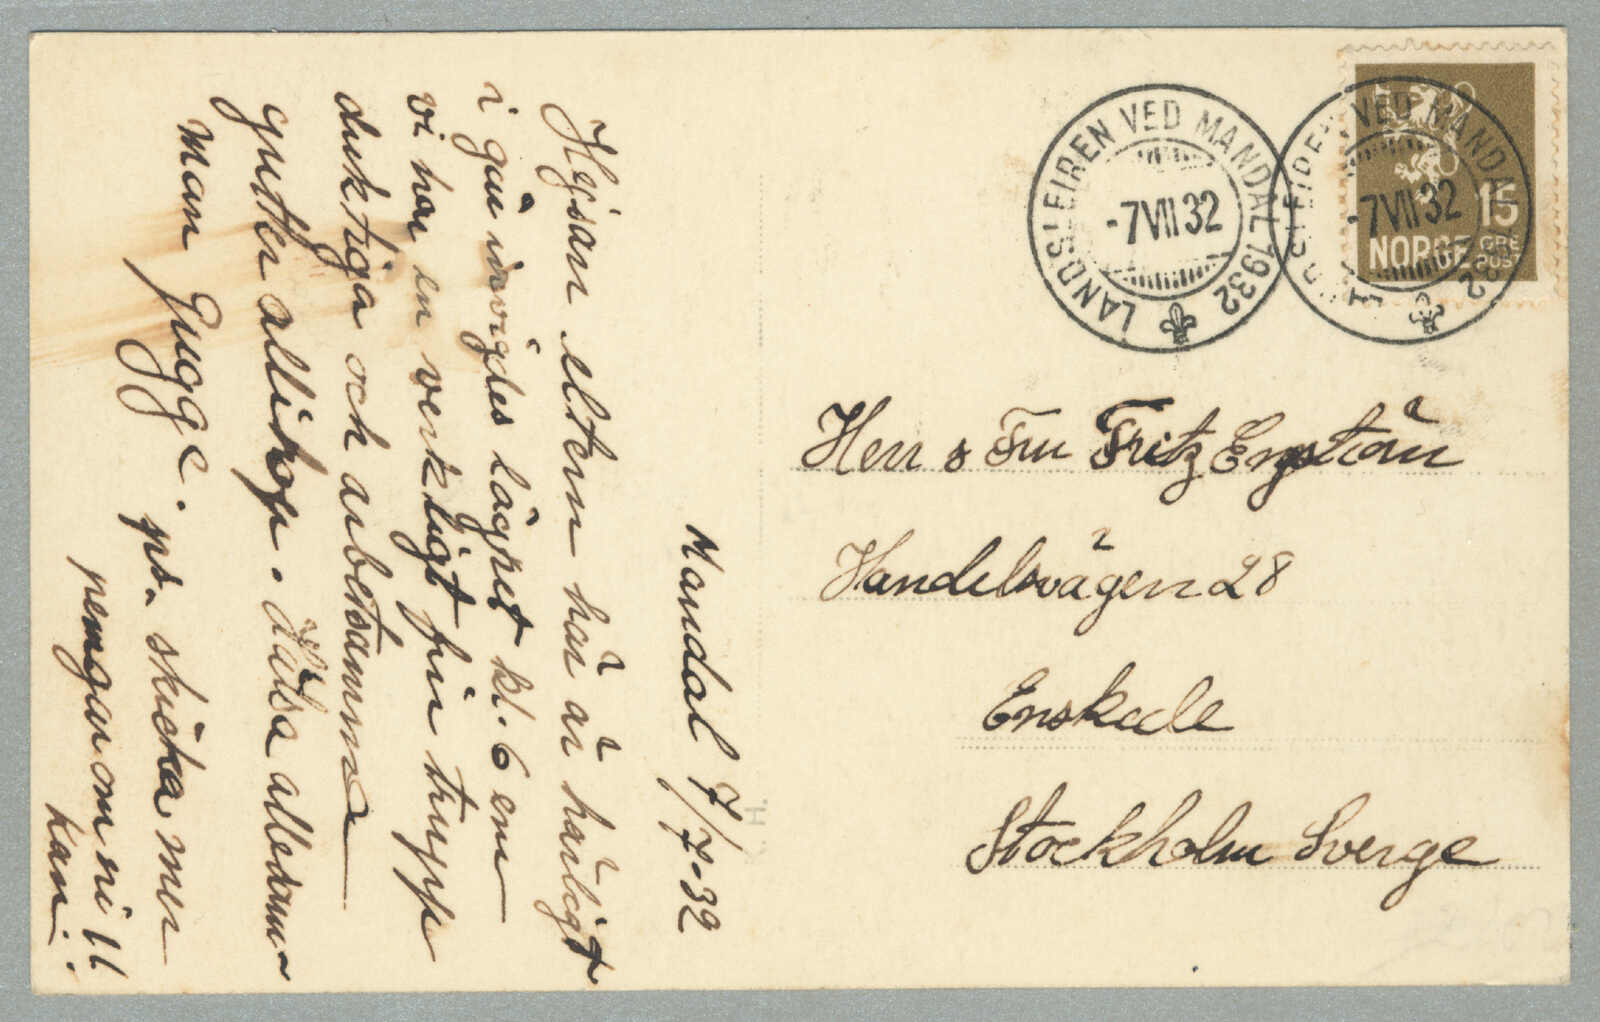 Mandal 7/7-32
Hejsan eltern här är härligt
i går invigdes lägret kl. 6 em
vi har en verkligt fin trupp
duktiga och arbetsamma
gutter allihop. Hälsa allesam-
man Gugge. ps. skicka mer
pengar om ni !!
kan!
LANDSLEIREN VED MANDAL 1932
-7VII32
LANDSLEIREN VED MANDAL 1932
-7VII32
15
NORGE ØRE
POST
Herr o Fru Fritz Engström
Handelsvägen 28
Enskede
Stockholm Sverge
H.